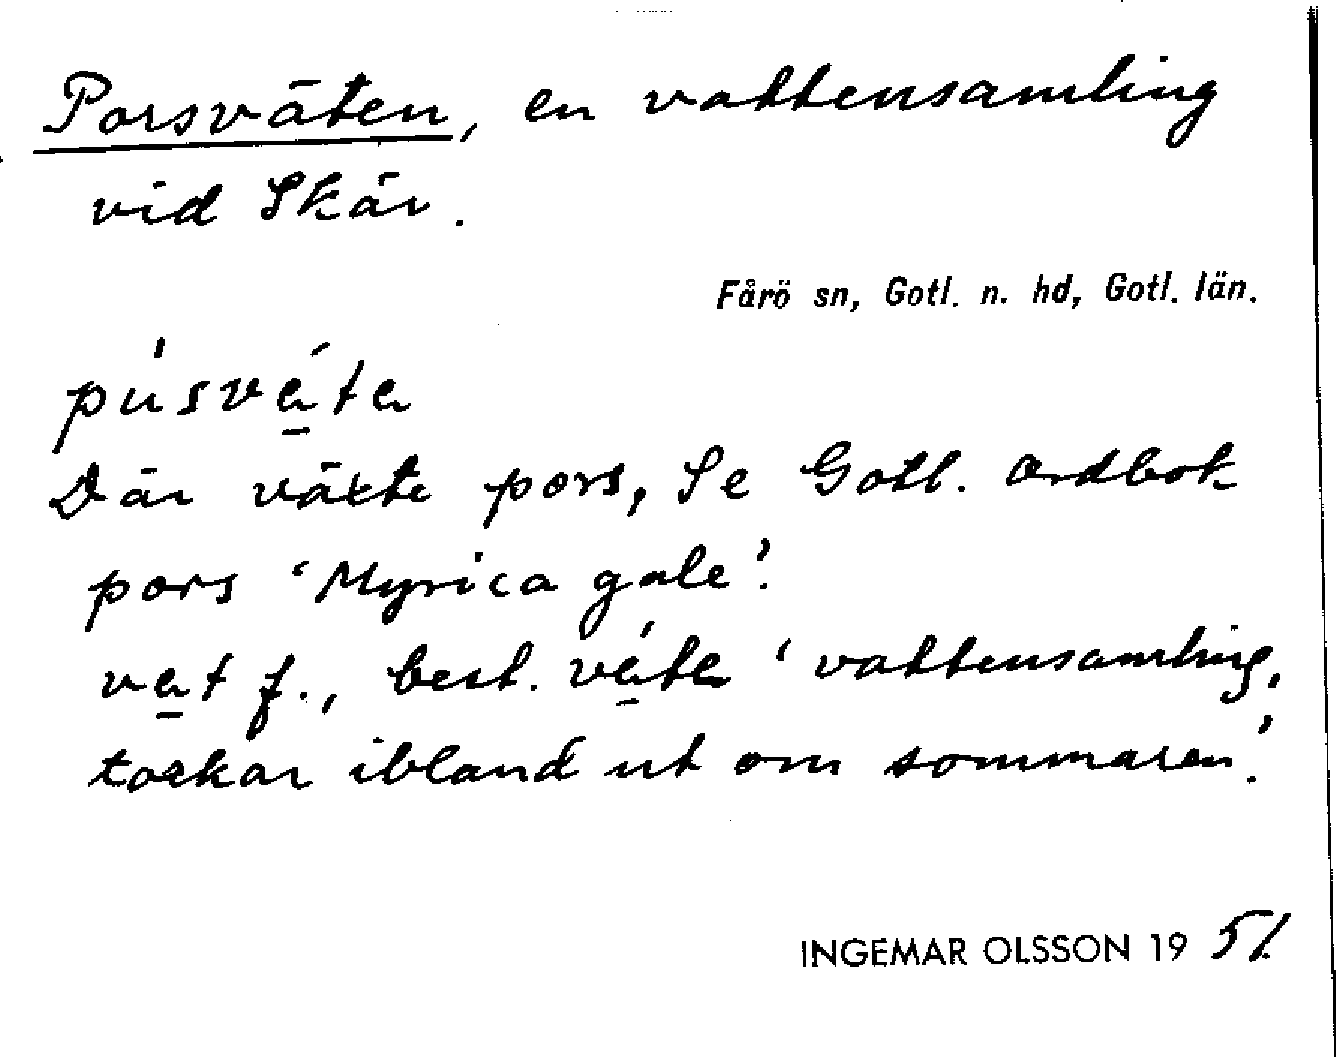 Porsväten, en vattensamling
vid Skär.
Fårö sn, Gotl. n. hd, Gotl. län.
pu̍své̠ta
Där växte pors, Se Gotl. ordbok
pors 'Myrica gale'.
ve̠t f., best. vé̠ta 'vattensamling,
torkar ibland ut om sommaren'.
INGEMAR OLSSON 19 51